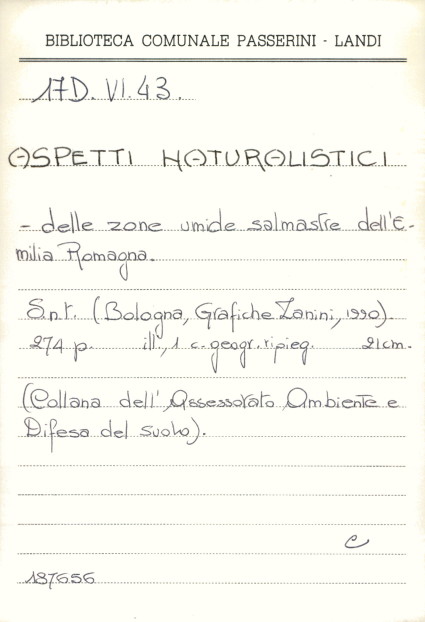 BIBLIOTECA COMUNALE PASSERINI - LANDI
17D. VI. 43.
ASPETTI NATURALISTICI
- delle zone umide salmastre dell'E-
milia Romagna.
S.n.t. (Bologna, Grafiche Zanini, 1990).
274 p. ill., 1 c. geogr. ripieg. 21 cm.
(Collana dell' Assessorato Ambiente e
Difesa del suolo).
C
187656